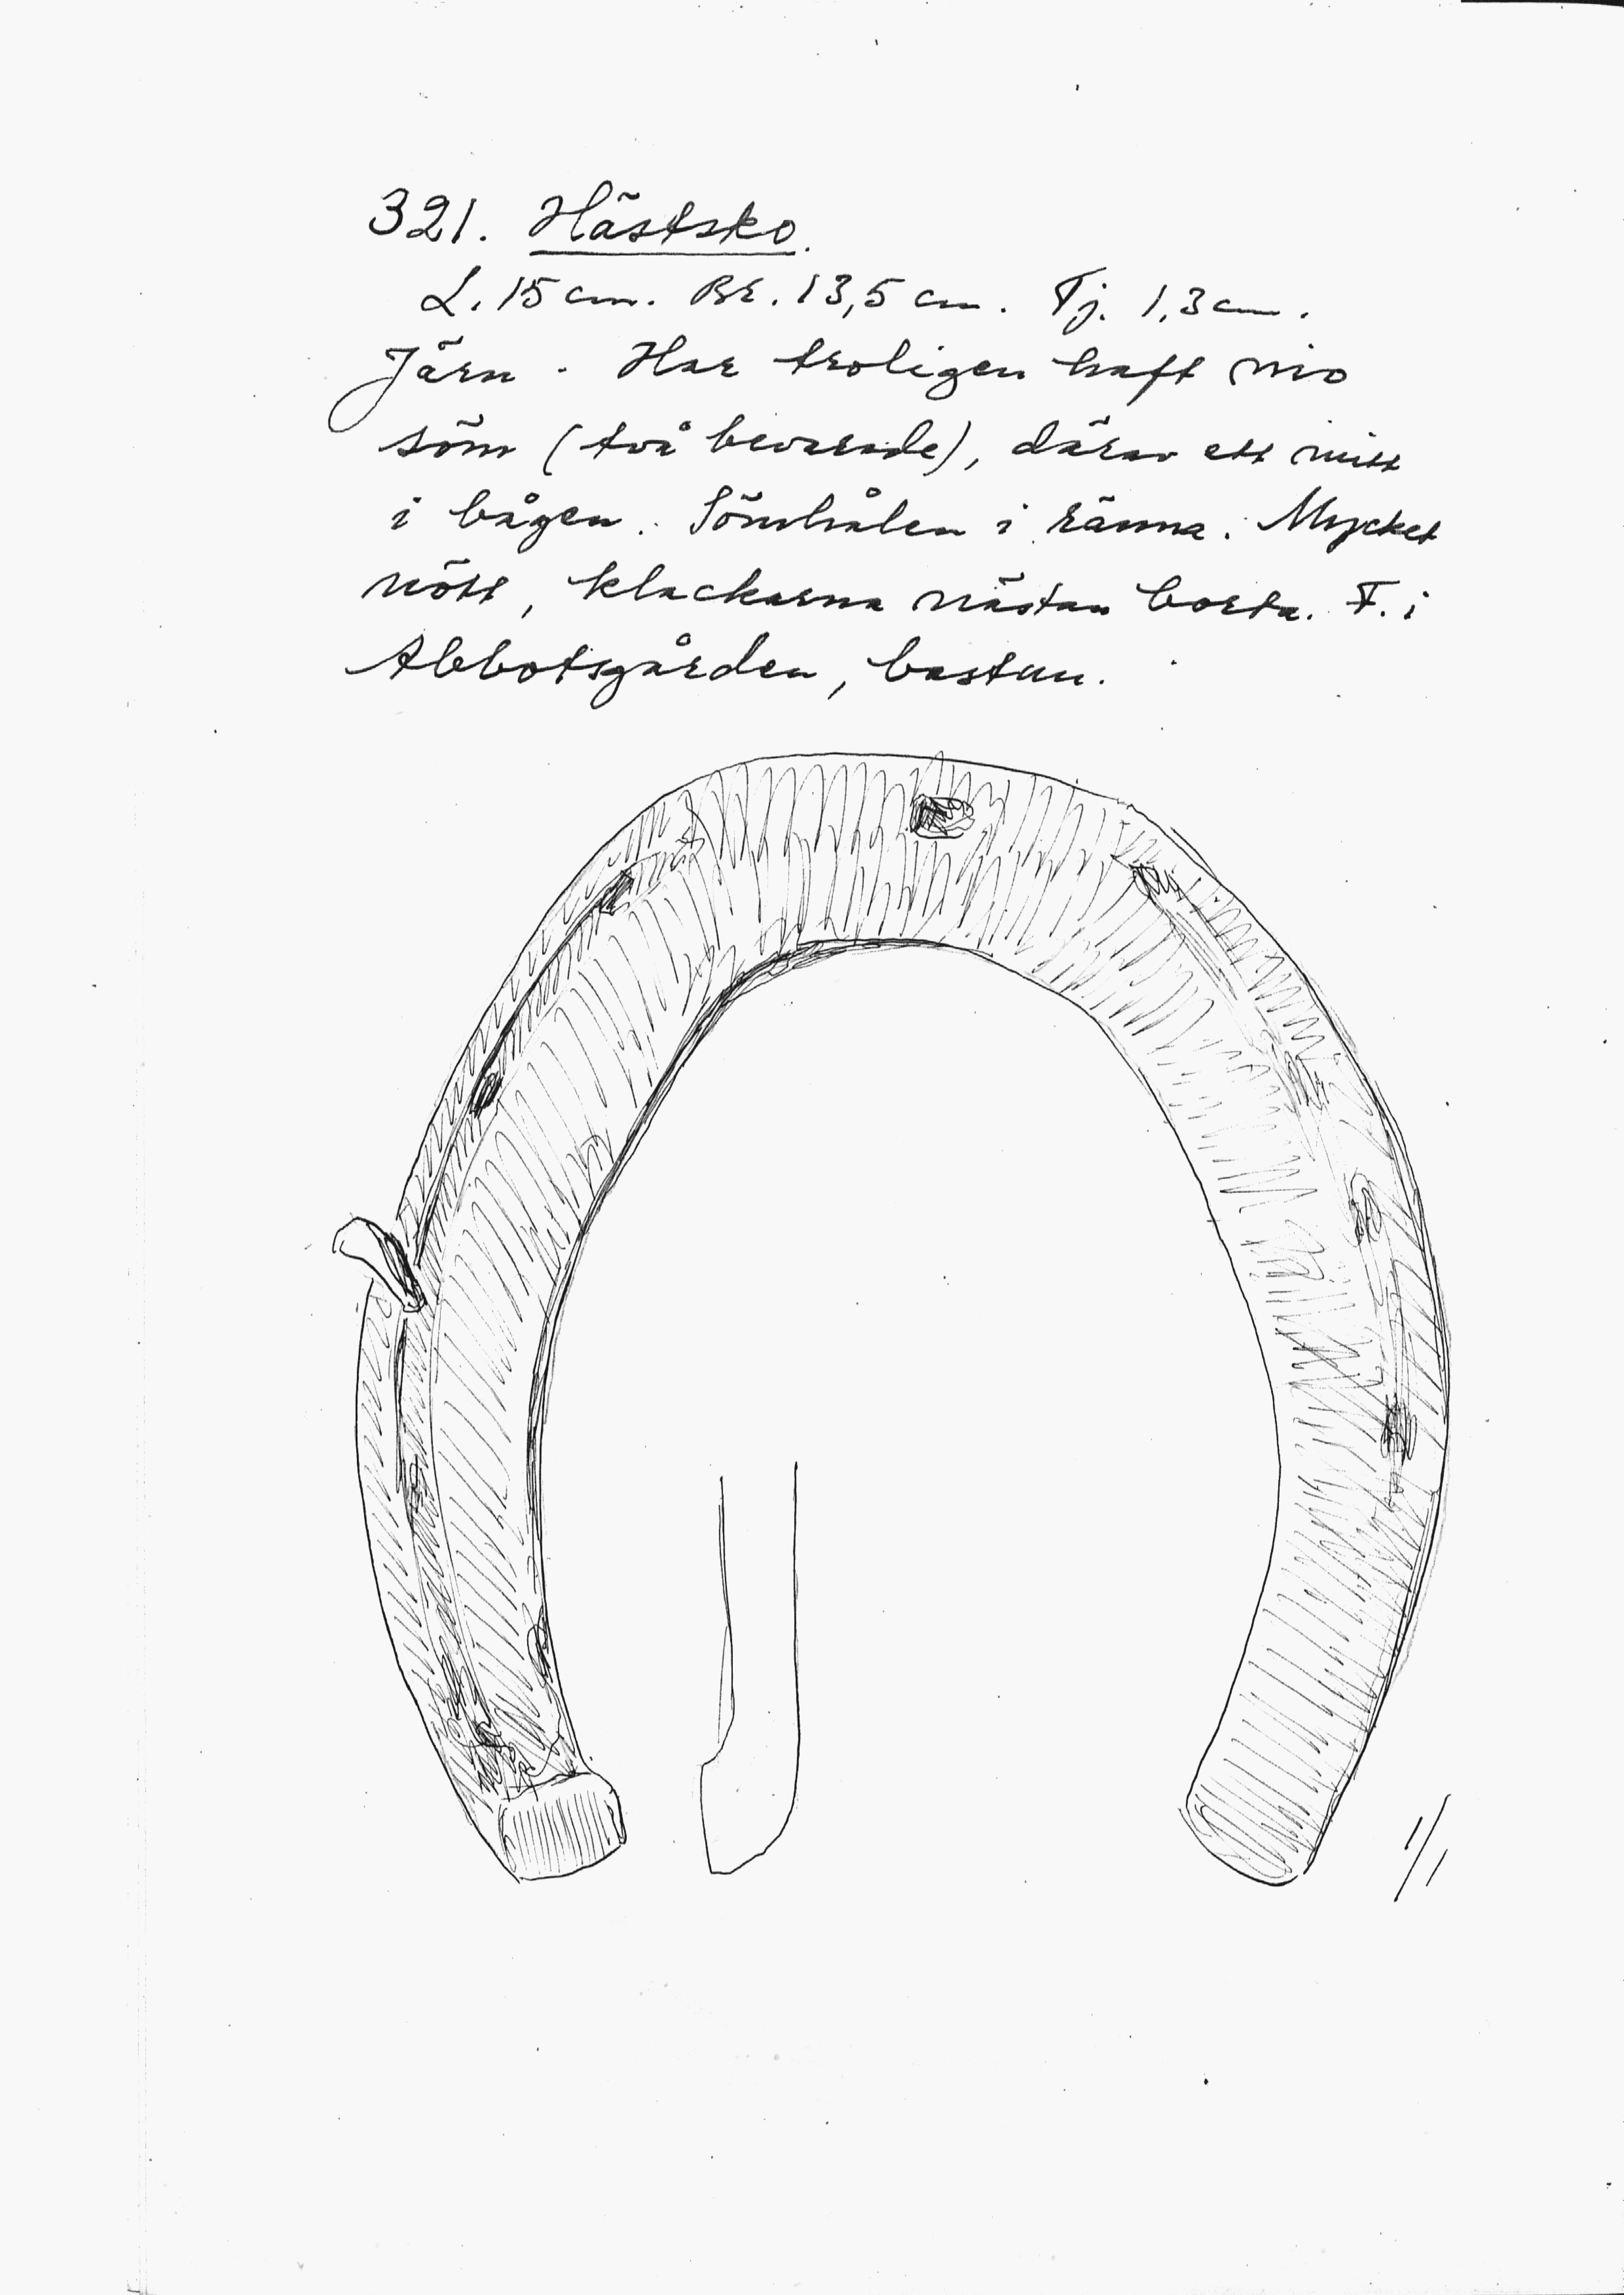 321. Hästsko.
L. 15 cm. Br. 13,5 cm. Tj. 1,3 cm.
Järn. Har troligen haft nio
söm (två bevarade), därav ett mitt
i bågen. Sömhålen i ränna. Mycket
nött, klackarna nästan borta. F. i
Abbotsgården, bastun.
1/1